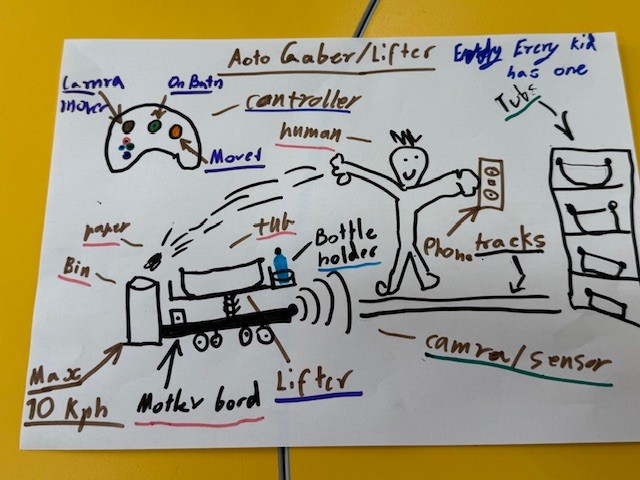 Aoto Gaber/Lifter
Every kid
has one
Camra
mover
On Butn
controller
Mover
human
Tubs
paper
tub
Bottle
holder
Bin
Phone
tracks
camra/sensor
Lifter
Mother bord
Max
10 Kph